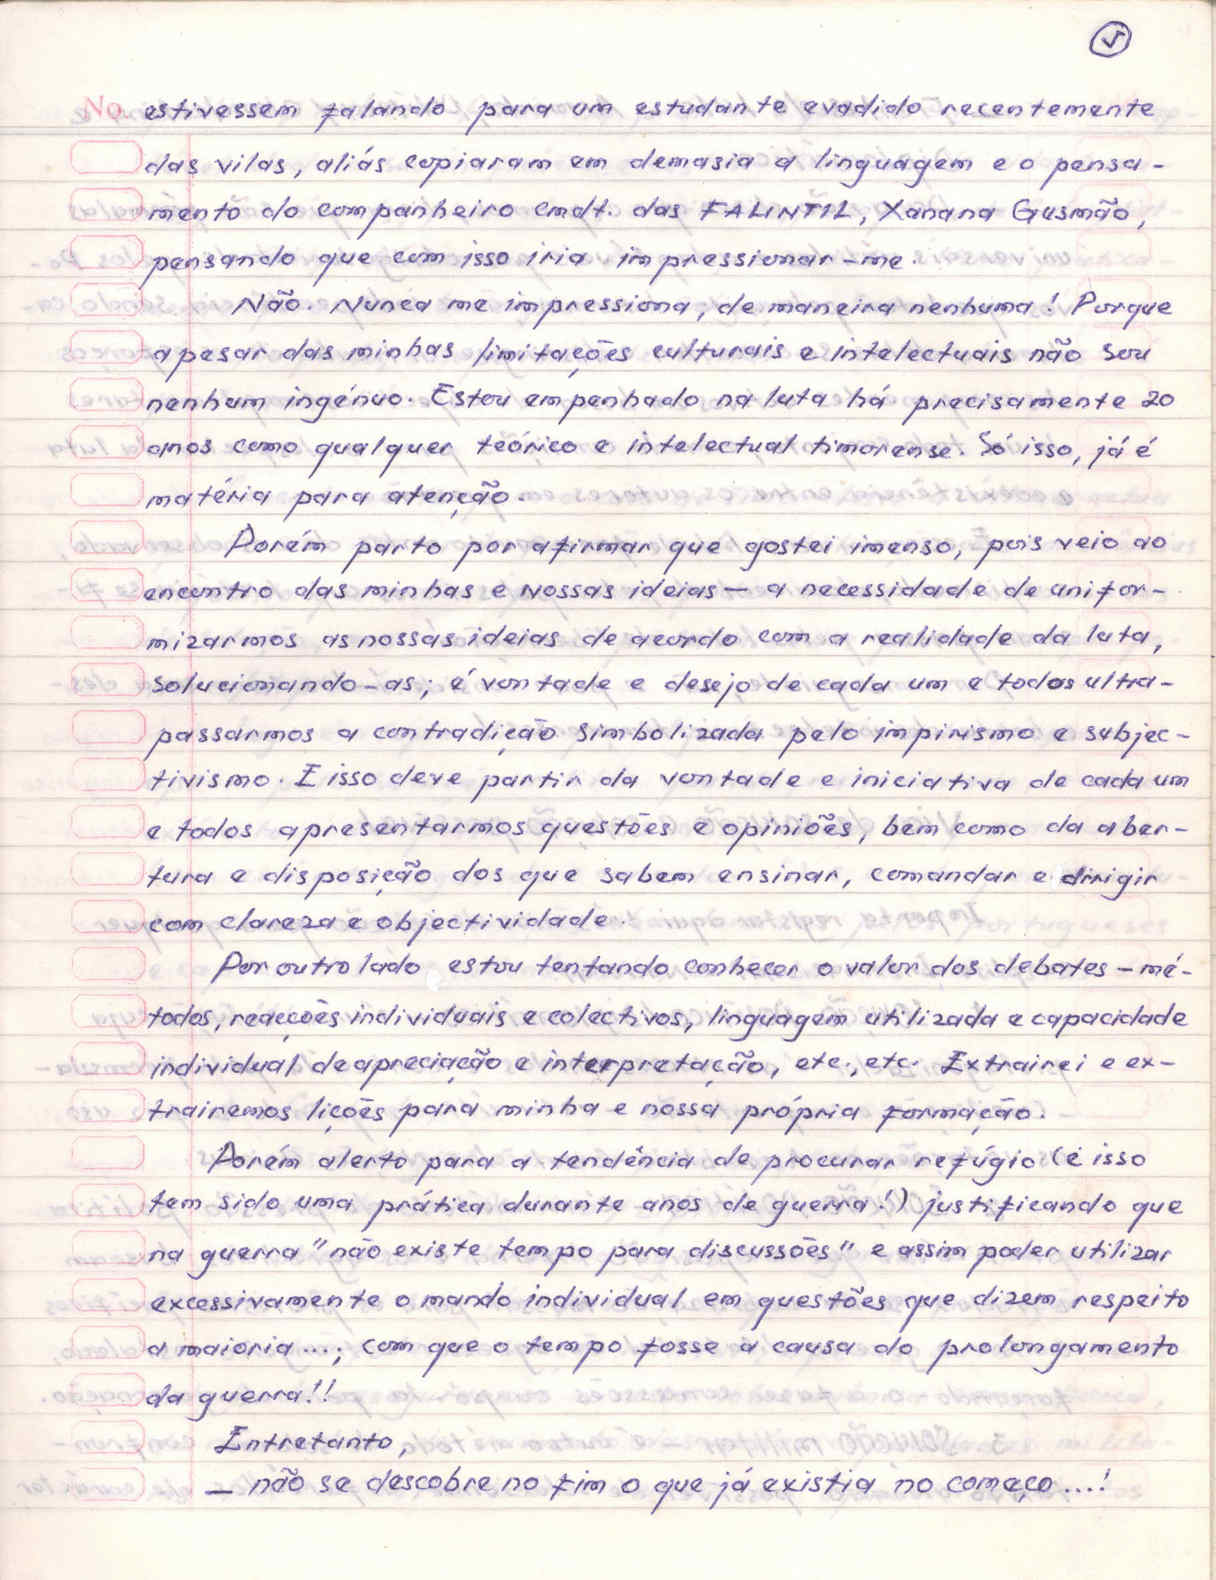 No. estivessem falando para um estudante evadido recentemente
das vilas, aliás copiaram em demasia a linguagem e o pensa-
mento do companheiro cmdt. das FALINTIL, Xanana Gusmão,
pensando que com isso iria impressionar-me.
Não. Nunca me impressiona, de maneira nenhuma! Porque
apesar das minhas limitações culturais e intelectuais não sou
nenhum ingénuo. Estou empenhado na luta há precisamente 20
anos como qualquer teórico e intelectual timorense. Só isso, já é
matéria para atenção.
Porém parto por afirmar que gostei imenso, pois veio ao
encontro das minhas e nossas ideias — a necessidade de unifor-
mizarmos as nossas ideias de acordo com a realidade da luta,
solucionando-as; é vontade e desejo de cada um e todos ultra-
passarmos a contradição simbolizada pelo impirismo e subjec-
tivismo. E isso deve partir da vontade e iniciativa de cada um
e todos apresentarmos questões e opiniões, bem como da aber-
tura e disposição dos que sabem ensinar, comandar e dirigir
com clareza e objectividade.
Por outro lado estou tentando conhecer o valor dos debates – mé-
todos, reacções individuais e colectivos, linguagem utilizada e capacidade
individual de apreciação e interpretação, etc., etc. Extrairei e ex-
trairemos lições para minha e nossa própria formação.
Porém alerto para a tendência de procurar refúgio (é isso
tem sido uma prática durante anos de guerra!) justificando que
na guerra "não existe tempo para discussões" e assim poder utilizar
excessivamente o mando individual em questões que dizem respeito
a maioria...; com que o tempo fosse a causa do prolongamento
da guerra!!
Entretanto,
— não se descobre no fim o que já existia no começo....!